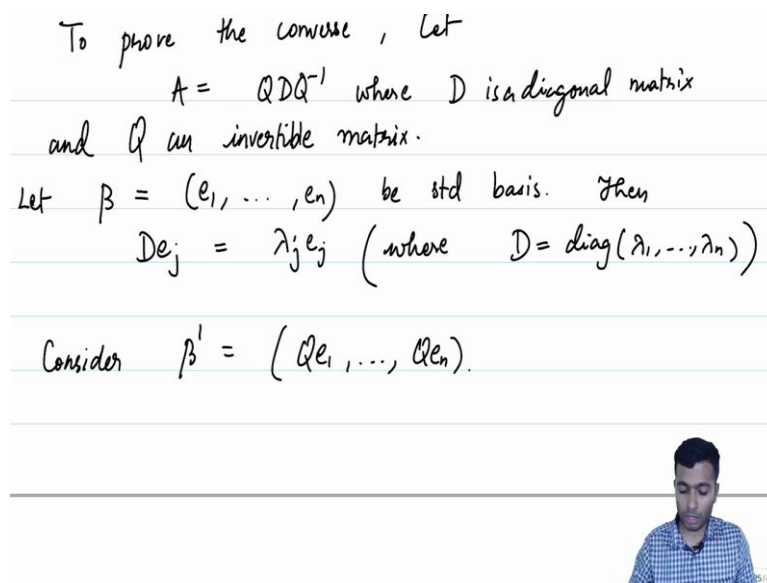 To prove the converse, Let
A = QDQ⁻¹ where D is a diagonal matrix
and Q an invertible matrix.
Let β = (e₁, ..., eₙ) be std basis. Then
Deⱼ = λⱼeⱼ (where D = diag(λ₁, ..., λₙ))
Consider β' = (Qe₁, ..., Qeₙ).